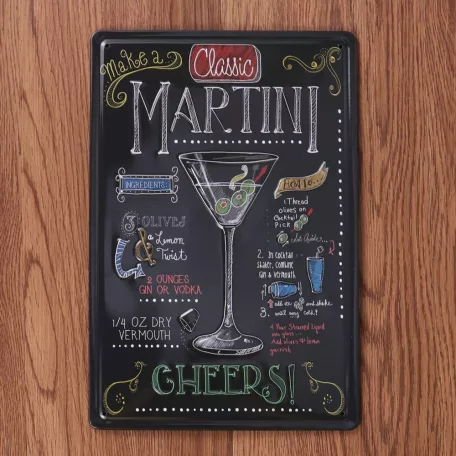 Make a
Classic
MARTINI
INGREDIENTS:
3 OLIVES
a Lemon
Twist
2 OUNCES
GIN OR VODKA
1/4 OZ DRY
VERMOUTH
HOW TO...
1 Thread
olives on
Cocktail
Pick
set Aside...
2. In Cocktail
Shaker, combine
Gin & Vermouth
add ice and shake
3. until very Cold!
4 Pour Strained liquid
into glass...
Add olives & lemon
garnish
CHEERS!